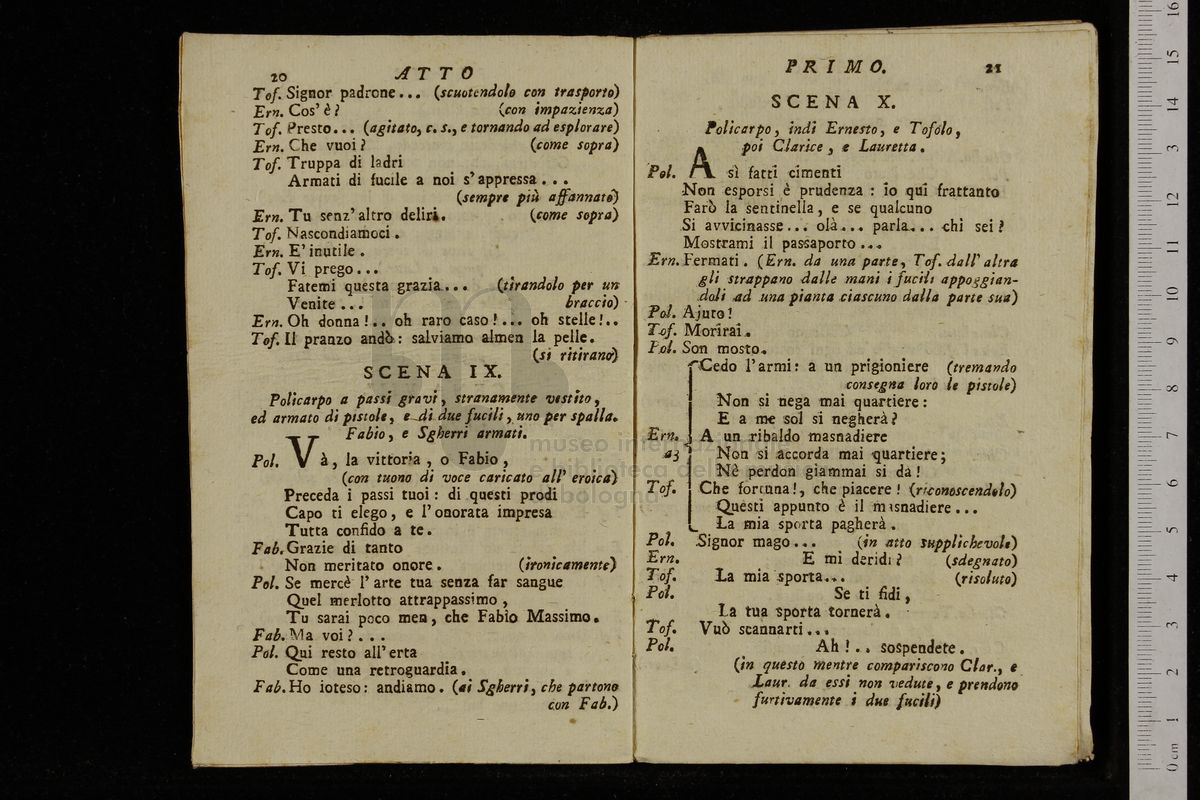 20 ATTO
Tof. Signor padrone... (scuotendolo con trasporto)
Ern. Cos' è? (con impazienza)
Tof. Presto... (agitato, c. s., e tornando ad esplorare)
Ern. Che vuoi? (come sopra)
Tof. Truppa di ladri
Armati di fucile a noi s'appressa...
(sempre più affannato)
Ern. Tu senz'altro deliri. (come sopra)
Tof. Nascondiamoci.
Ern. E' inutile.
Tof. Vi prego...
Fatemi questa grazia... (tirandolo per un
Venite... braccio)
Ern. Oh donna!.. oh raro caso!... oh stelle!..
Tof. Il pranzo andò: salviamo almen la pelle.
(si ritirano)
SCENA IX.
Policarpo a passi gravi, stranamente vestito,
ed armato di pistole, e di due fucili, uno per spalla.
Fabio, e Sgherri armati.
Pol. Và, la vittoria, o Fabio,
(con tuono di voce caricato all' eroica)
Preceda i passi tuoi: di questi prodi
Capo ti elego, e l'onorata impresa
Tutta confido a te.
Fab. Grazie di tanto
Non meritato onore. (ironicamente)
Pol. Se mercè l'arte tua senza far sangue
Quel merlotto attrappassimo,
Tu sarai poco men, che Fabio Massimo.
Fab. Ma voi?...
Pol. Qui resto all'erta
Come una retroguardia.
Fab. Ho ioteso: andiamo. (ai Sgherri, che partono
con Fab.)
PRIMO. 21
SCENA X.
Policarpo, indi Ernesto, e Tofolo,
poi Clarice, e Lauretta.
Pol. A sì fatti cimenti
Non esporsi è prudenza: io qui frattanto
Farò la sentinella, e se qualcuno
Si avvicinasse... olà... parla... chi sei?
Mostrami il passaporto...
Ern. Fermati. (Ern. da una parte, Tof. dall' altra
gli strappano dalle mani i fucili appoggian-
doli ad una pianta ciascuno dalla parte sua)
Pol. Ajuto!
Tof. Morirai.
Pol. Son mosto.
Cedo l'armi: a un prigioniere (tremando
consegna loro le pistole)
Non si nega mai quartiere:
E a me sol si negherà?
Ern. A un ribaldo masnadiere
a3 Non si accorda mai quartiere;
Nè perdon giammai si da!
Tof. Che fortuna!, che piacere! (riconoscendolo)
Questi appunto è il masnadiere...
La mia sporta pagherà.
Pol. Signor mago... (in atto supplichevole)
Ern. E mi deridi? (sdegnato)
Tof. La mia sporta... (risoluto)
Pol. Se ti fidi,
La tua sporta tornerà.
Tof. Vuò scannarti...
Pol. Ah!.. sospendete.
(in questo mentre compariscono Clar., e
Laur. da essi non vedute, e prendono
furtivamente i due fucili)
museo internazionale
e biblioteca della
bologna
0 cm 1 2 3 4 5 6 7 8 9 10 11 12 13 14 15 16